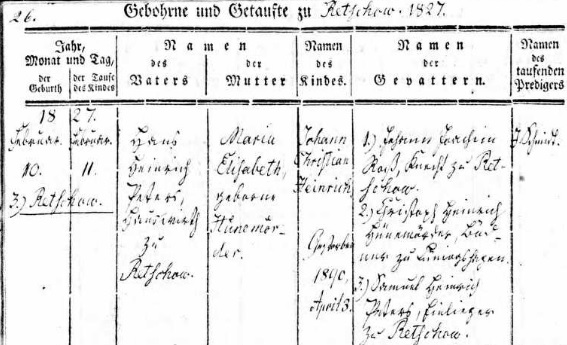 26. Gebohrne und Getaufte zu Retschow. 1827.
Jahr, Monat und Tag,
der Geburth
der Taufe des Kindes
Namen des Vaters
Namen der Mutter
Namen des Kindes.
Namen der Gevattern.
Namen des taufenden Predigers
1827.
Februar.
10.
Februar.
11.
3.) Retschow.
Hans
Heinrich
Peters,
Hauswirth
zu
Retschow.
Maria
Elisabeth,
geborne
Hünemör-
der.
Johann
Christian
Heinrich
Gestorben
1890,
April 3.
1.) Johann Joachim
Knecht zu Ret-
schow.
2.) Christoph Heinrich
Hünemörder, Büd-
ner zu
3.) Samuel Heinrich
Peters, Einlieger
zu Retschow.